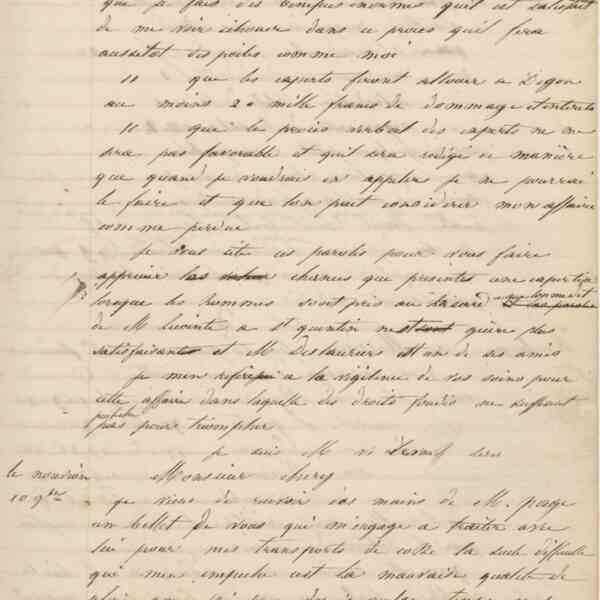 que je fais des comptes enormes quil est satisfait
de me voir echouer dans ce procès quil fera
aussitot des poeles comme moi
que les experts feront allouer a Digon
au moins 20 mille francs de dommage et interets
que le procès verbal des experts ne me
sera pas favorable et quil sera redigé de manière
que quand je voudrais en appeler je ne pourrai
le faire et que lon peut considerer mon affaire
comme perdue
je vous cite ces paroles pour vous faire
apprecier les chances que presente une expertise
lorsque les hommes sont pris au hasard
de M a St quentin nest guère plus
satisfaisant et M Deslauriers est un de ses amis
je men refère a la vigilence de vos soins pour
cette affaire dans laquelle des droits fondés ne suffisent
peutetre
pas pour triompher
je suis M
le nouvion
10 9bre
Monsieur chery
je viens de recevoir des mains de M. page
un billet de vous qui mengage a traiter avec
lui pour mes transports de la seule difficulté
qui men empeche est la mauvaise qualité de